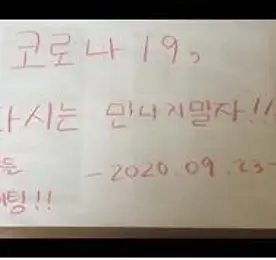 코로나 19,
다시는 만나지말자!!
들 - 2020.09.23 -
팅!!